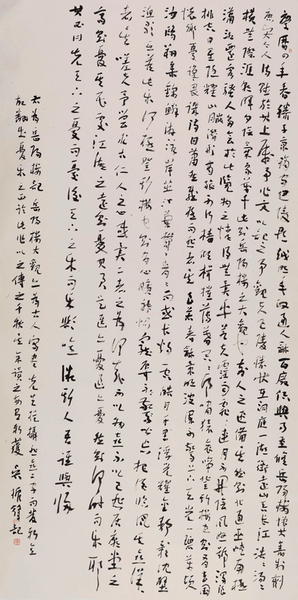 慶曆四年春滕子京謫守巴陵郡越明年政通人和百廢俱興乃重修岳陽樓增其舊制刻
唐賢今人詩賦於其上屬予作文以記之予觀夫巴陵勝狀在洞庭一湖銜遠山吞長江浩浩湯湯
橫無際涯朝暉夕陰氣象萬千此則岳陽樓之大觀也前人之述備矣然則北通巫峽南極
瀟湘遷客騷人多會於此覽物之情得無異乎若夫霪雨霏霏連月不開陰風怒號濁浪
排空日星隱耀山岳潛形商旅不行檣傾楫摧薄暮冥冥虎嘯猿啼登斯樓也則有去國
懷鄉憂讒畏譏滿目蕭然感極而悲者矣至若春和景明波瀾不驚上下天光一碧萬頃
沙鷗翔集錦鱗游泳岸芷汀蘭郁郁青青而或長煙一空皓月千里浮光耀金靜影沉璧
漁歌互答此樂何極登斯樓也則有心曠神怡寵辱皆忘把酒臨風其喜洋洋
者矣嗟夫予嘗求古仁人之心或異二者之爲何哉不以物喜不以己悲居廟堂之
高則憂其民處江湖之遠則憂其君是進亦憂退亦憂然則何時而樂耶
其必曰先天下之憂而憂後天下之樂而樂歟噫微斯人吾誰與歸
右爲岳陽樓記岳陽樓大觀
吳振鋒記